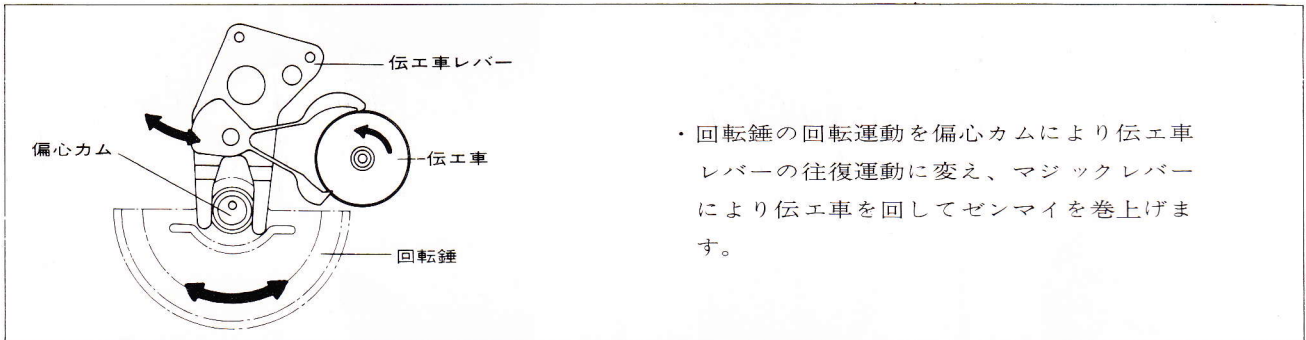 伝エ車レバー
偏心カム
伝エ車
回転錘
・回転錘の回転運動を偏心カムにより伝エ車
レバーの往復運動に変え、マジックレバー
により伝エ車を回してゼンマイを巻上げま
す。